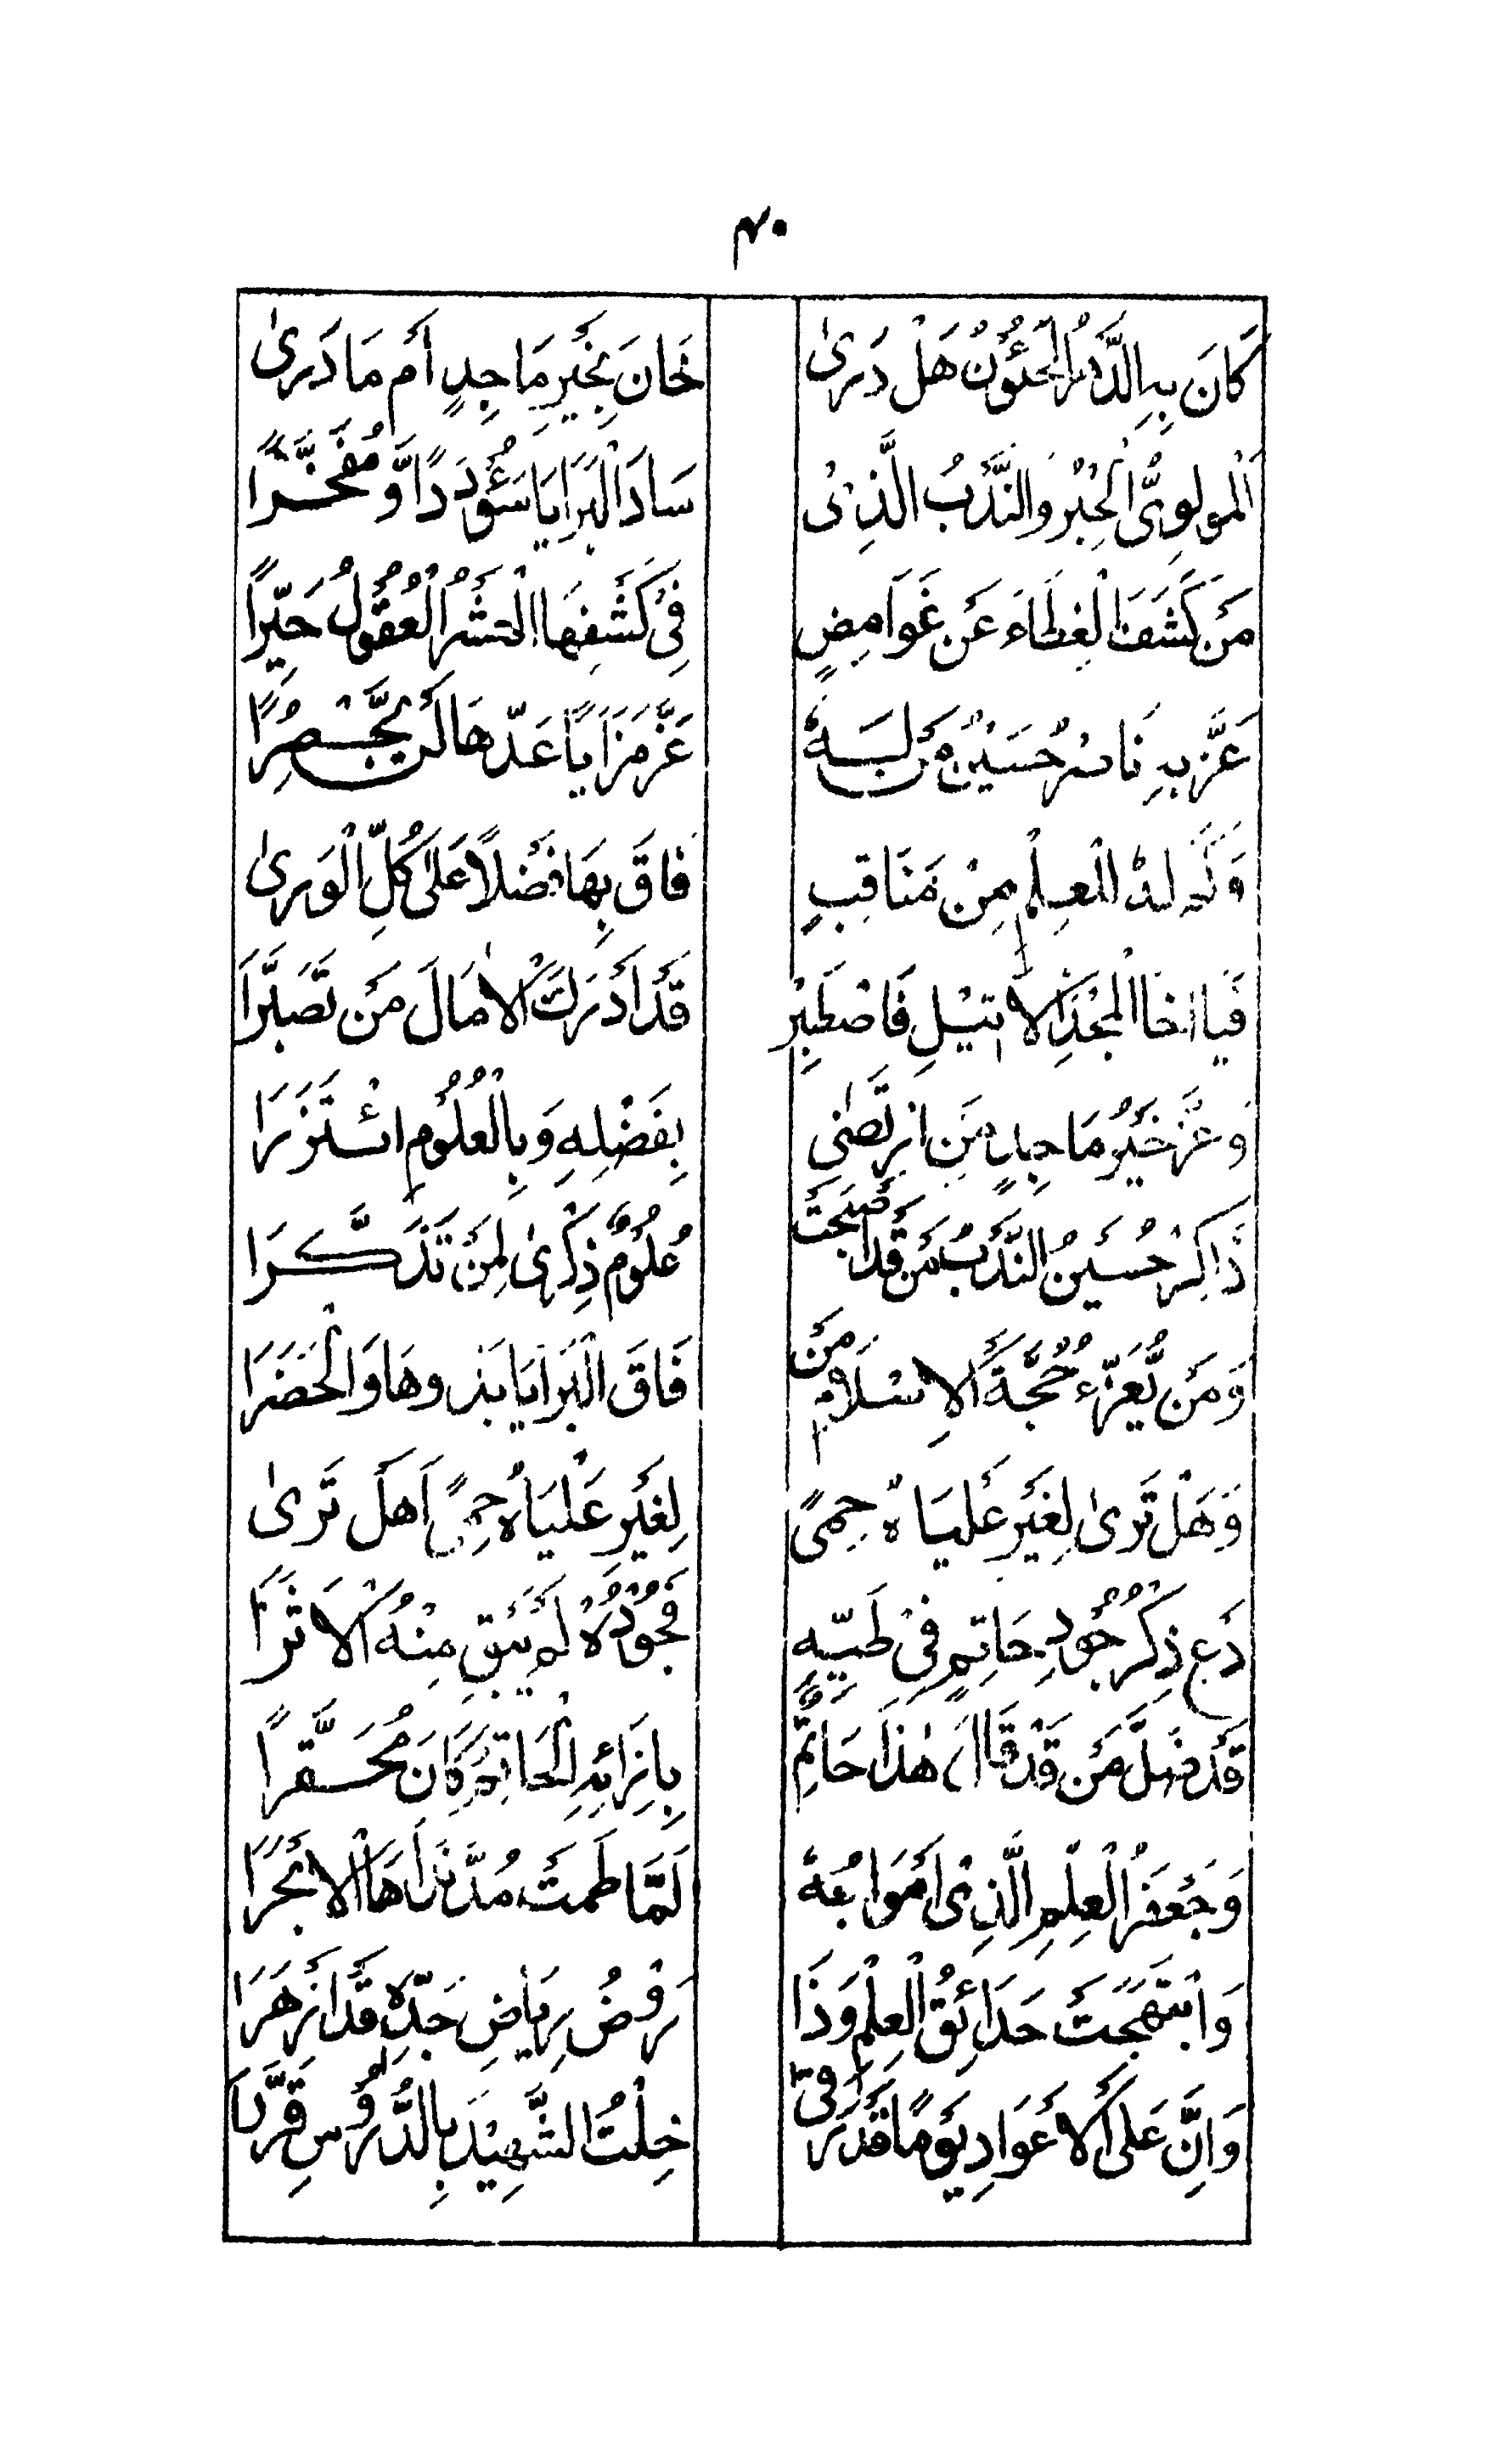 ۴۰
كَانَ بِہِ الدَّهْرُ الْخَئُوْنُ هَلْ دَرىٰ خَانَ بِخَيْرِ مَاجِدٍ أَم مَا دَرىٰ
اَلْمولوِىُّ الْحِبْرُ وَالنَّدْبُ الَّذِىْ سَادَ الْبَرَايَا سُؤْدَدًا وَّ مُفْخَرًا
مَنْ كَشَفَ الْغِطَاءَ عَنْ غَوَامِضٍ فِىْ كَشْفِهَا الْعَشْرُ الْعُقُولُ حَيَّرًا
عَزَّ بِهِ نَاصِرْ حُسَيْنٌ مَنْ لَهٗ غُرّ مَزَايًا عَدّهَا لَنْ يُّحْصَرًا
وَكَم لہٗ الْعِلْمِ مِنْ مَنَاقِبٍ فَاقَ بِهَا فَضْلاً عَلىٰ كُلِّ الْوَرىٰ
فَيا اخَا الْمَجْدِ الْاَثِيْلِ فَاصْطَبِرْ قَدْ اَدْرَكَ الْاٰمَالَ مَنْ تَصَبَّرَا
وَعَزِّ خَيْرُ مَاجِدٍ مَنِ ارْتَضٰى بِفَضْلِهِ وَبِالْعُلُوْمِ ائْتَزَرَا
ذَاكِرْ حُسَيْنُ النَّدْبُ مَنْ قَدْ اَصْبَحَتْ عُلُوْمُهٗ ذِكْرىٰ لِمَنْ تَذَكَّرَا
وَمَنْ يُّعَزّٰى حُجَّةَ الْاِسْلَامِ مَنْ فَاقَ الْبَرَايَا بَذْوهَا وَالْحَضَرَا
وَهَلْ تَرىٰ لِغَيْرِ عَلْيَاہُ حِمًى لِغَيْرِ عَلْيَاہُ حِمًى اَهَلْ تَرىٰ
دَعْ ذِكْرُ جُوْدِ حَاتِمٍ فِىْ طَيِّهٖ فَجُوْدُهٗ لَمْ يَبْقِ مِنْهُ الْاَثَرَا
قَدْ ضَلَّ مَنْ قَدْ قَالَ هٰذَا حَاتِمٌ بِازَائِهِ الْحَاتِمُ كَانَ مُحَقَّرًا
وَجَعْفَرُ الْعِلْمِ الَّذِىْ اَمْوَاجُهٗ لَمَّا طَمَتْ مُدَّ نَدَاهَا الْاَبْحُرَا
وَابْتَهَجَتْ حَدَائِقُ الْعِلْمِ وَذَا رَوْضُ رِيَاضِ جَدِّہِ قَدْ اَزْهَرَا
وَاِنْ عَلىٰ الْاَعْوَادِ يَوْمًا قَدْ رَقىٰ خِلْتُ الشَّهِيْدَ بِالدُّرُوْسِ قَرَّرَا